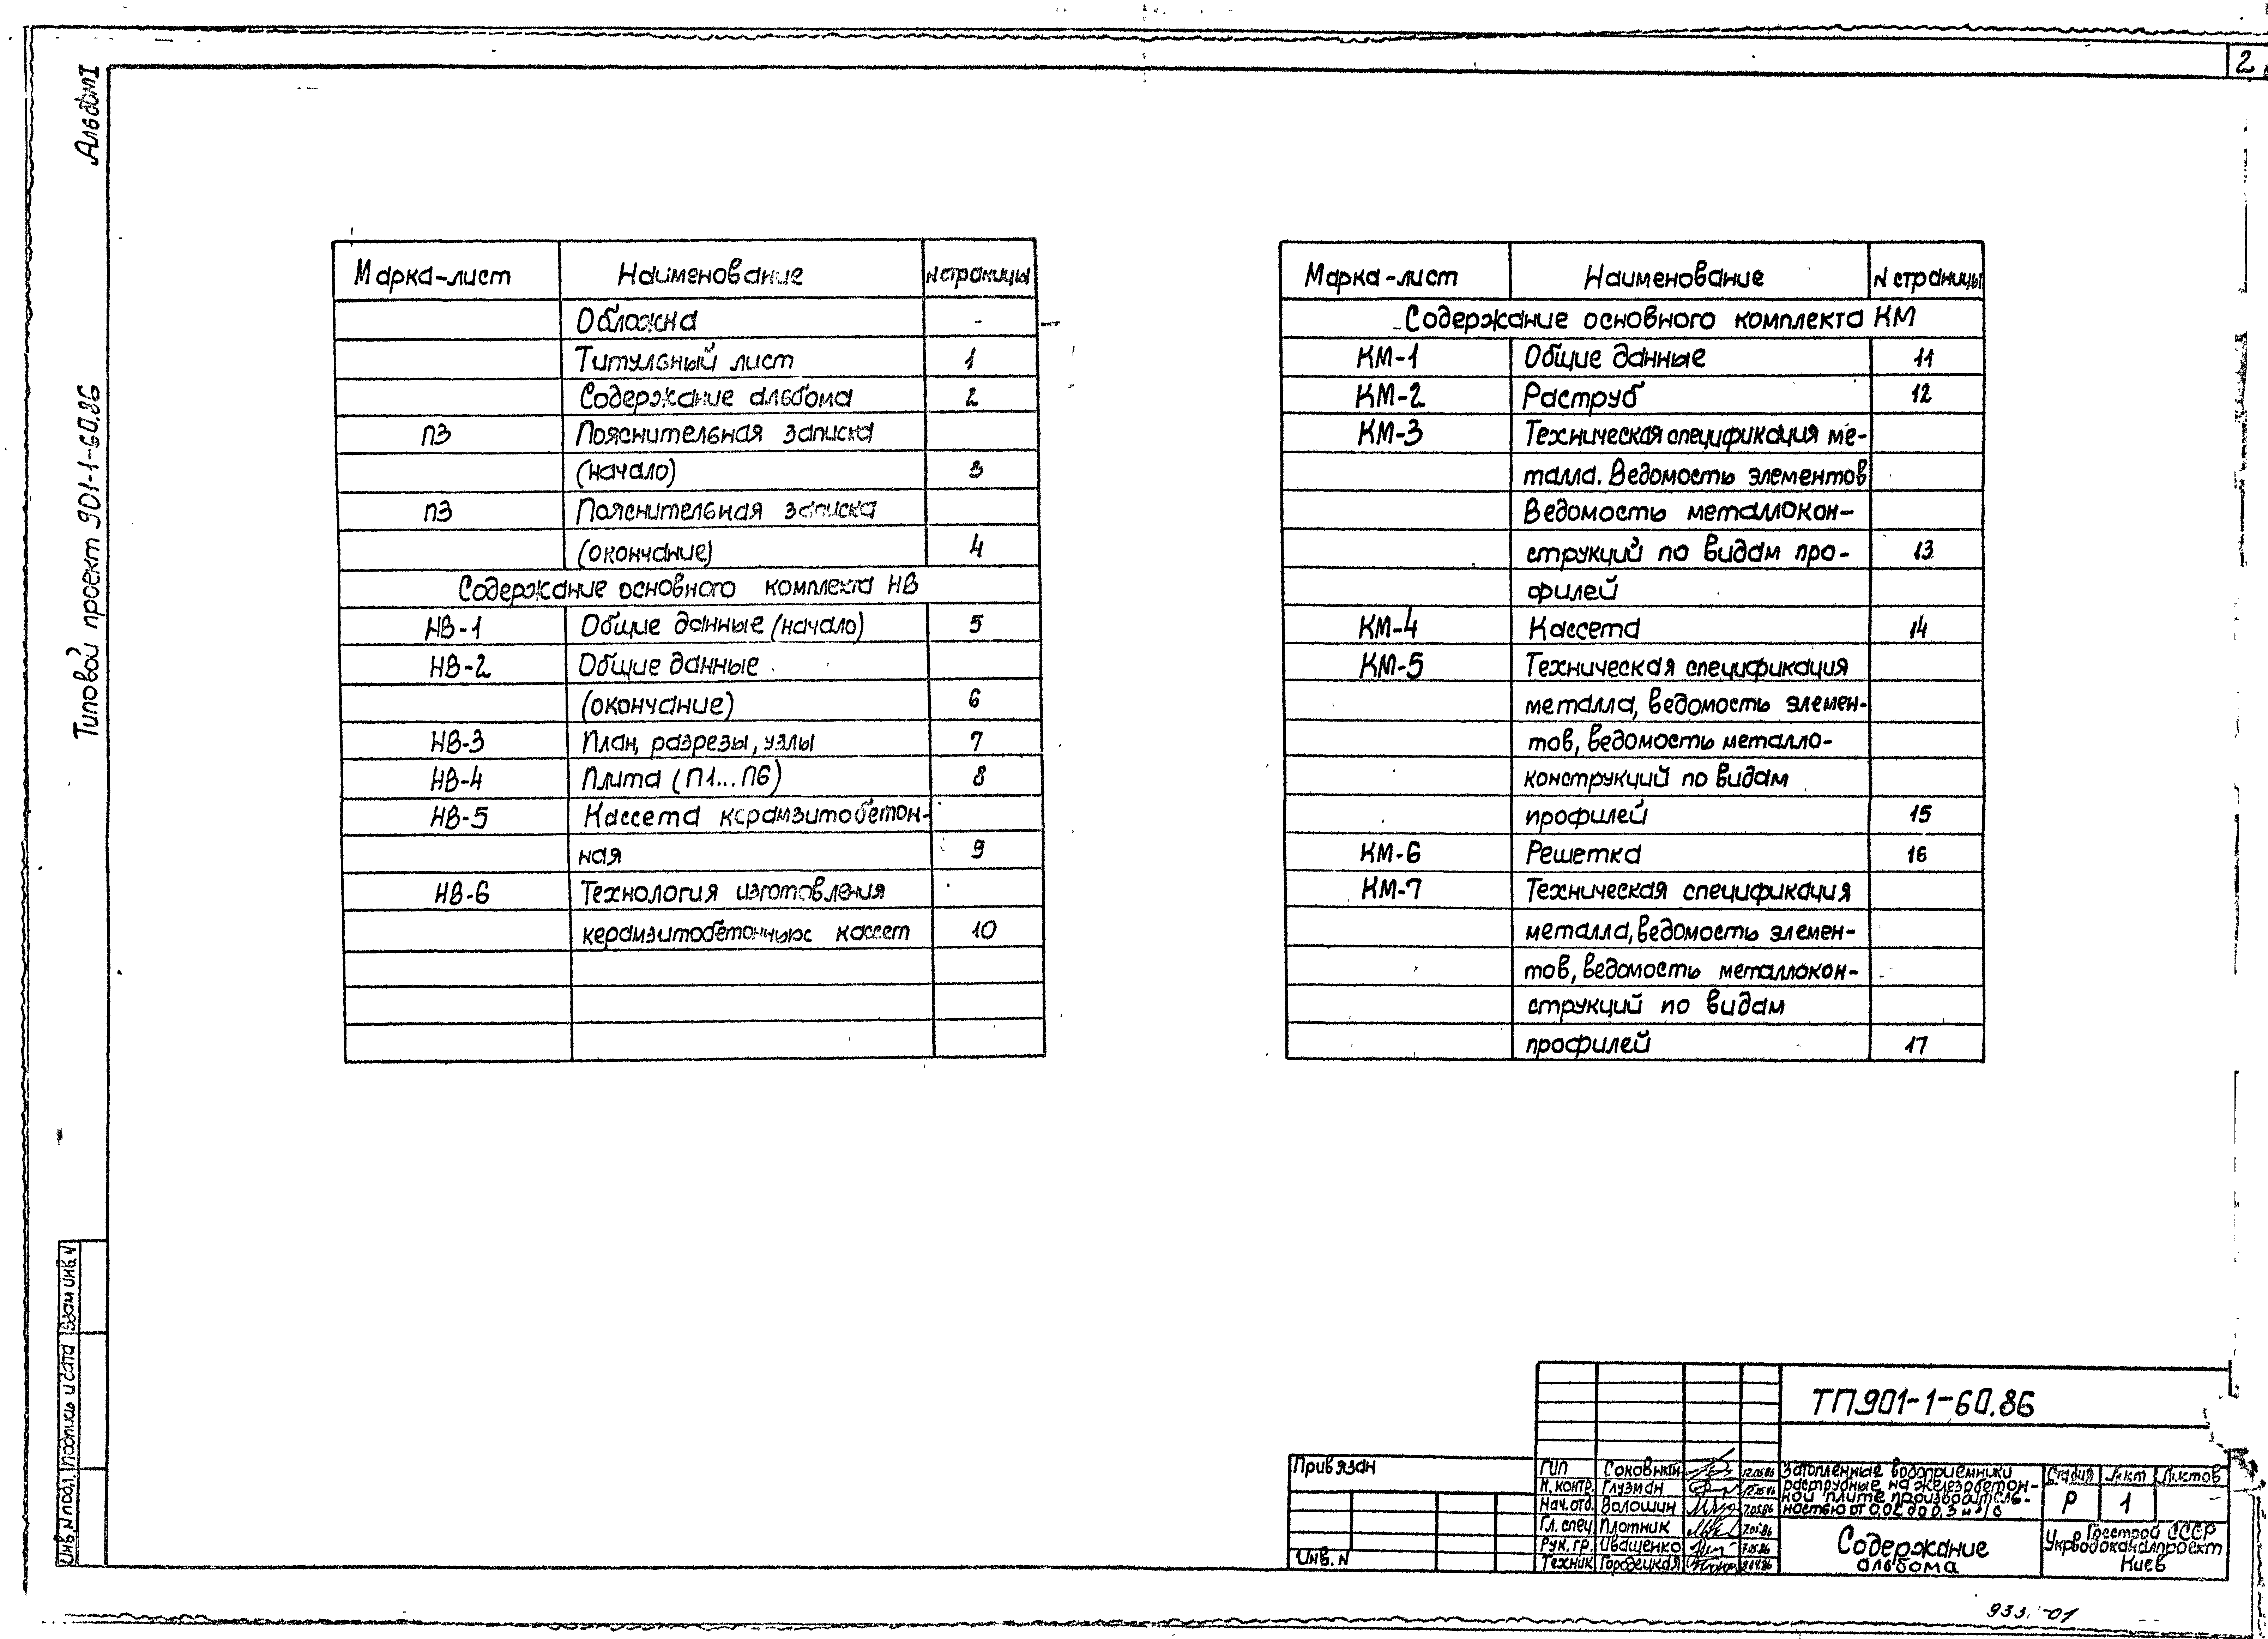 2
Альбом I
Типовой проект 901-1-60.86
Марка-лист Наименование N страницы
Обложка -
Титульный лист 1
Содержание альбома 2
ПЗ Пояснительная записка
(начало) 3
ПЗ Пояснительная записка
(окончание) 4
Содержание основного комплекта НВ
НВ-1 Общие данные (начало) 5
НВ-2 Общие данные
(окончание) 6
НВ-3 План, разрезы, узлы 7
НВ-4 Плита (П1...П6) 8
НВ-5 Кассета керамзитобетон-
ная 9
НВ-6 Технология изготовления
керамзитобетонных кассет 10
Марка-лист Наименование N страницы
Содержание основного комплекта КМ
КМ-1 Общие данные 11
КМ-2 Раструб 12
КМ-3 Техническая спецификация ме-
талла. Ведомость элементов
Ведомость металлокон-
струкций по видам про- 13
филей
КМ-4 Кассета 14
КМ-5 Техническая спецификация
металла, ведомость элемен-
тов, ведомость металло-
конструкций по видам
профилей 15
КМ-6 Решетка 16
КМ-7 Техническая спецификация
металла, ведомость элемен-
тов, ведомость металлокон-
струкций по видам
профилей 17
Инв. N подл. Подпись и дата Взам инв. N
ТП.901-1-60.86
Привязан
Инв. N
ГИП 12.05.86
Н. контр. Глузман 12.05.86
Нач. отд. Волошин 7.05.86
Гл. спец. Плотник 7.05.86
Рук. гр. Иващенко 7.05.86
Техник Городецкая
Затопленные водоприемники
раструбные на железобетон-
ной плите производитель-
ностью от 0,02 до 0,3 м³/с
Стадия Лист Листов
Р 1
Содержание
альбома
Госстрой СССР
Укрводоканалпроект
Киев